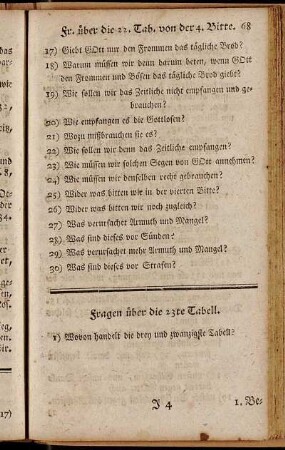 Fr. über die 22. Tab. von der 4. Bitte. 68
17) Giebt GOtt nur den Frommen das tägliche Brod?
18) Warum müssen wir denn darum beten, wenn GOtt
den Frommen und Bösen das tägliche Brod giebt?
19) Wie sollen wir das Zeitliche nicht empfangen und ge-
brauchen?
20) Wie empfangen es die Gottlosen?
21) Wozu mißbrauchen sie es?
22) Wie sollen wir denn das Zeitliche empfangen?
23) Wie müssen wir solchen Segen von GOtt annehmen?
24) Wie müssen wir denselben recht gebrauchen?
25) Wider was bitten wir in der vierten Bitte?
26) Wider was bitten wir noch zugleich?
27) Was verursachet Armuth und Mangel?
28) Was sind dieses vor Sünden?
29) Was verursachet mehr Armuth und Mangel?
30) Was sind dieses vor Strafen?
Fragen über die 23te Tabell.
1) Wovon handelt die drey und zwanzigste Tabell?
J 4
1. Be-
17)